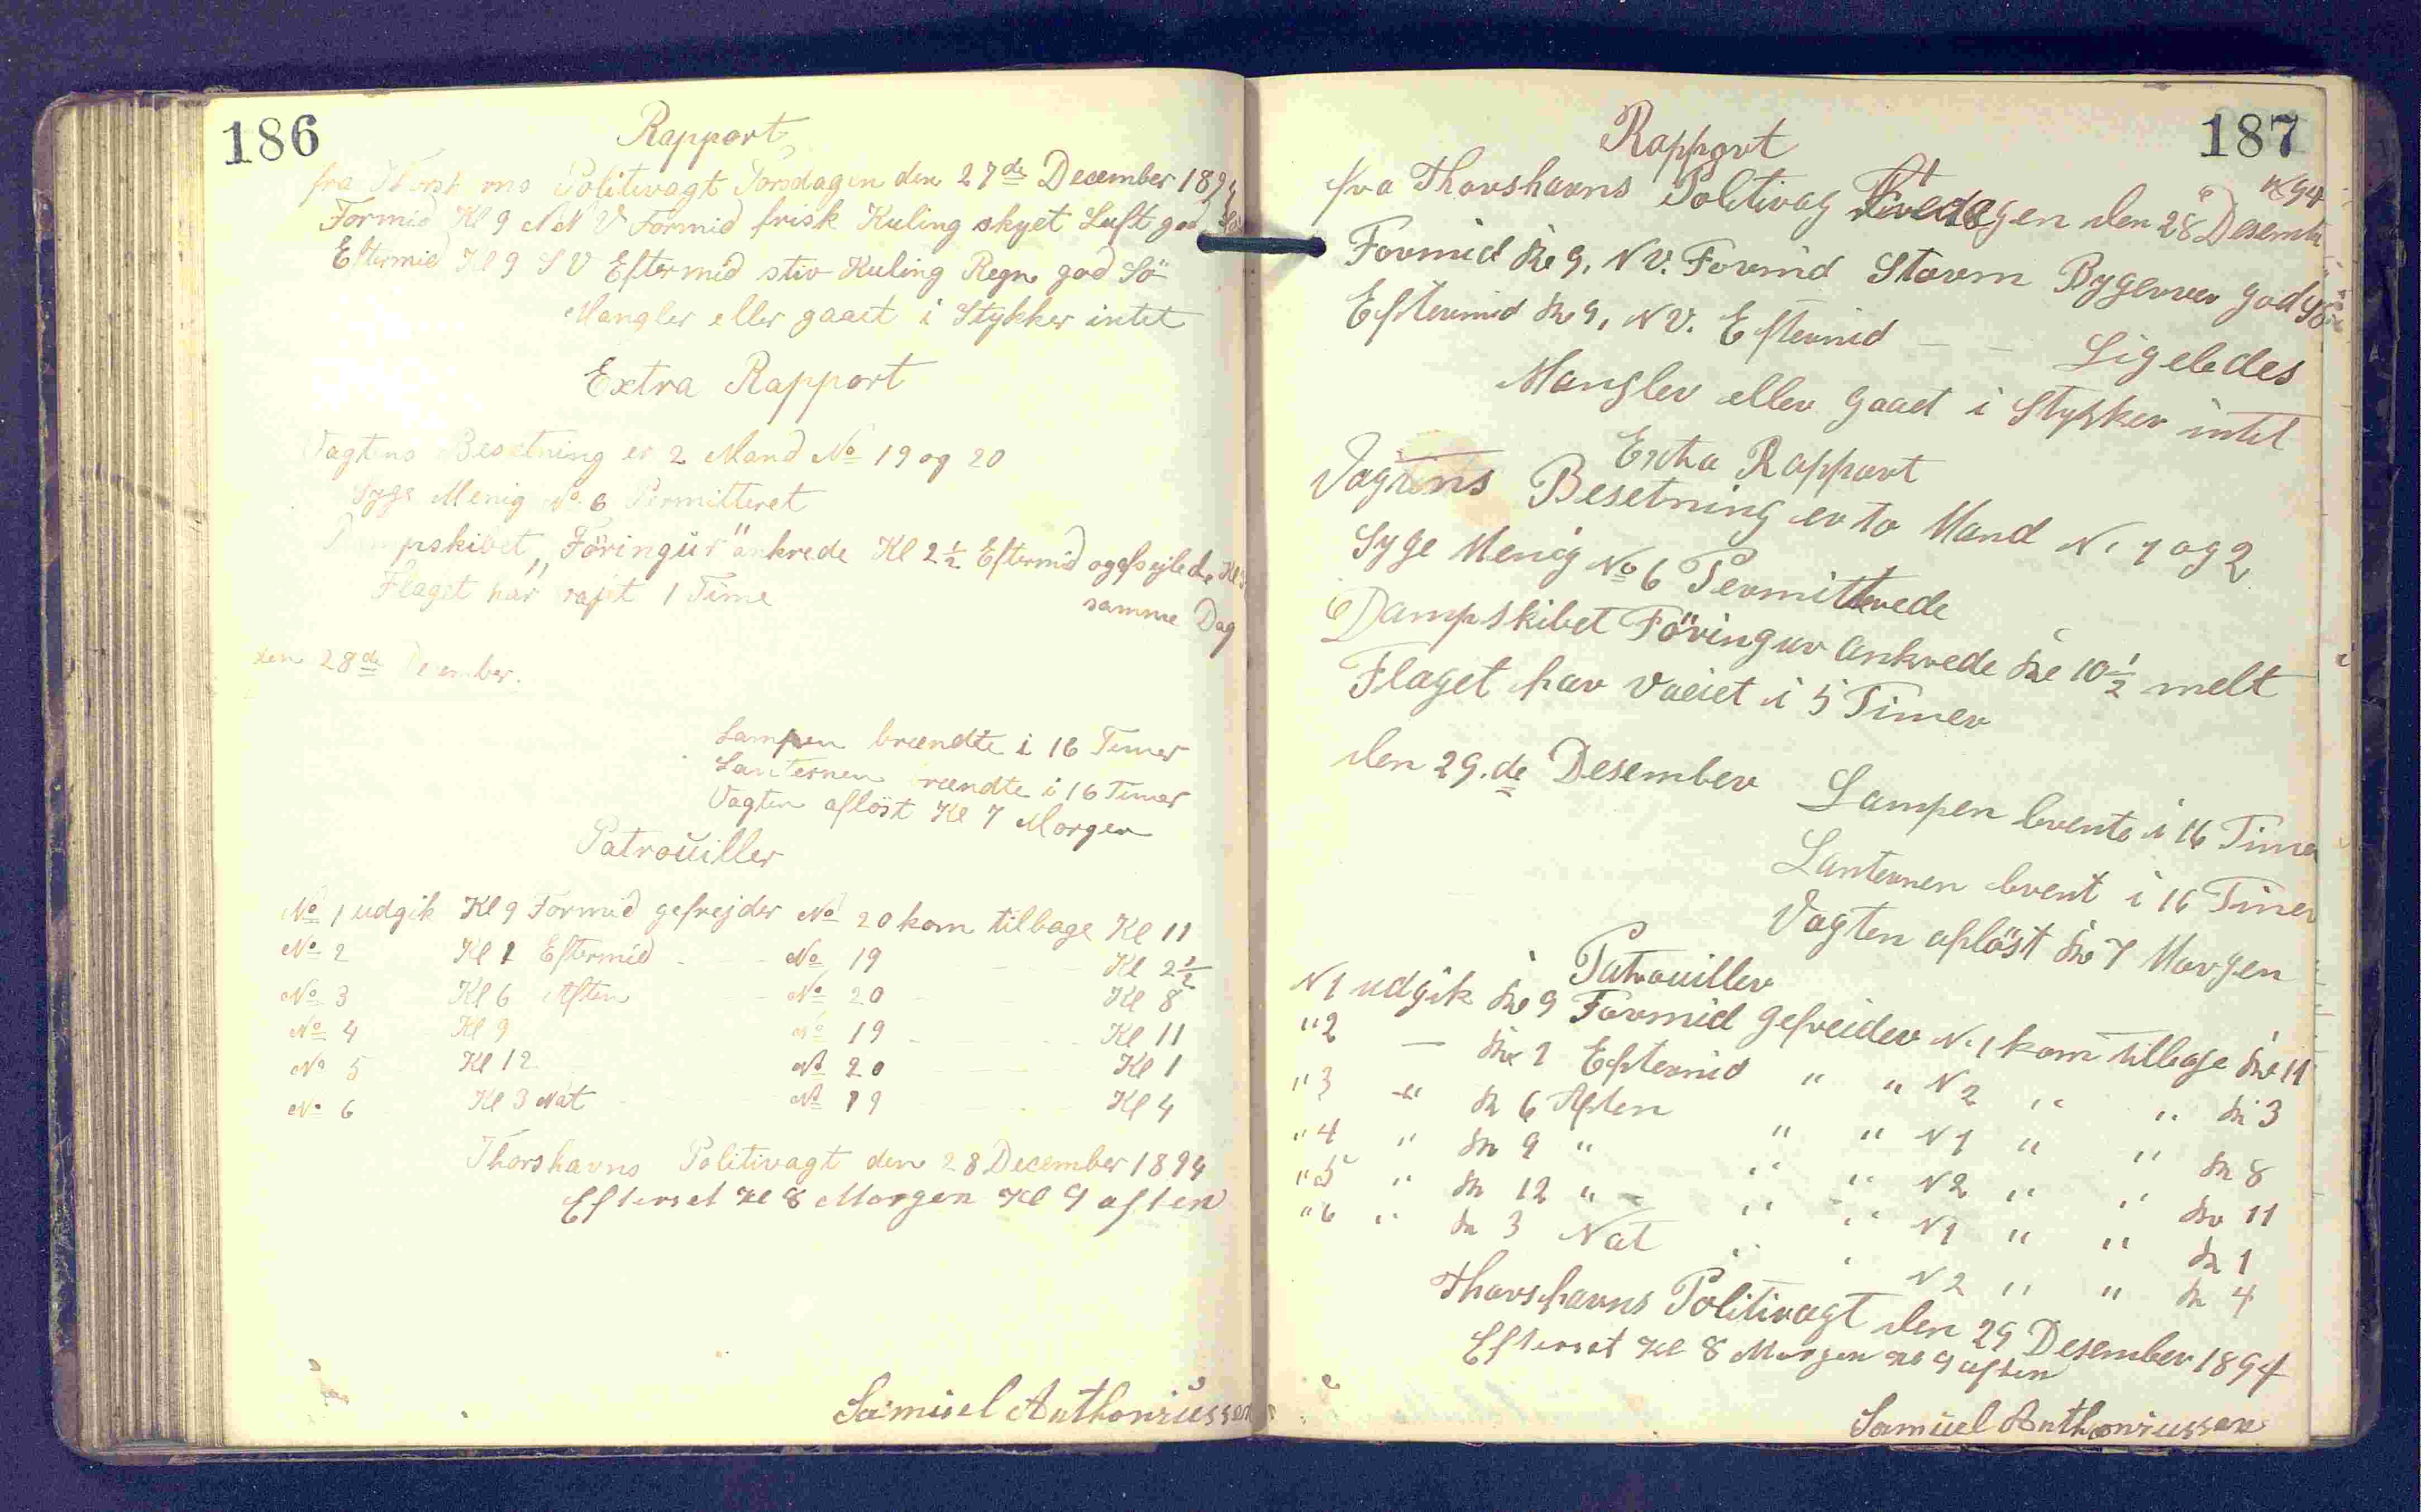 186
Rapport
fra Thorshavns Politivagt Torsdagen den 27de December 1894
Formid Kl 9 NNV Formid frisk Kuling skyet Luft god Sö
Eftermid Kl 9 SV Eftermid stiv Kuling Regn god Sö
Mangler eller gaaet i Stykker intet
Extra Rapport
Vagtens Besetning er 2 Mand No 19 og 20
Syge Menig No 6 Permitteret
Dampskibet „Föringur" ankrede Kl 2½ Eftermid og afsejlede Kl
samme Dag
Flaget har vajet 1 Time
den 28de December.
Lampen brændte i 16 Timer
Lanternen brændte i 16 Timer
Vagten aflöst Kl 7 Morgen
Patrouiller
No 1 udgik Kl 9 Formid gefrejder No 20 kom tilbage Kl 11
No 2 Kl 1 Eftermid - No 19 - Kl 2½
No 3 Kl 6 Aften - No 20 - Kl 8
No 4 Kl 9 No 19 - Kl 11
No 5 Kl 12 No 20 - Kl 1
No 6 Kl 3 Nat No 19 - Kl 4
Thorshavns Politivagt den 28 December 1894
Efterset Kl 8 Morgen Kl 9 aften
Samuel Anthoniussen
187
Rapport
fra Thorshavns Politivag den 28 Desember 1894
Formid Kl 9, NV. Formid Storm Bygerver god Sö
Eftermid Kl 9, NV. Eftermid — — Ligeledes
Mangler eller gaaet i Stykker intet
Extra Rapport
Vagtens Besetning er to Mand N. 1 og 2
Syge Menig No 6 Permitterede
Dampskibet Föringur ankrede Kl 10½ melt
Flaget har vaeiet i 5 Timer
den 29.de Desember
Lampen brente i 16 Timer
Lanternen brent i 16 Timer
Vagten aflöst Kl 7 Morgen
Patrouiller
N 1 udgik Kl 9 Formid gefreider N. 1 kom tilbage Kl 11
" 2 — Kl 1 Eftermid " " N 2 " " Kl 3
" 3 " Kl 6 Aften " " N 1 " " Kl 8
" 4 " Kl 9 " " " N 2 " " Kl 11
" 5 " Kl 12 " " " N 1 " " Kl 1
" 6 " Kl 3 Nat " " N 2 " " Kl 4
Thorshavns Politivagt den 29 Desember 1894
Efterset Kl 8 Morgen Kl 9 aften
Samuel Anthoniussen